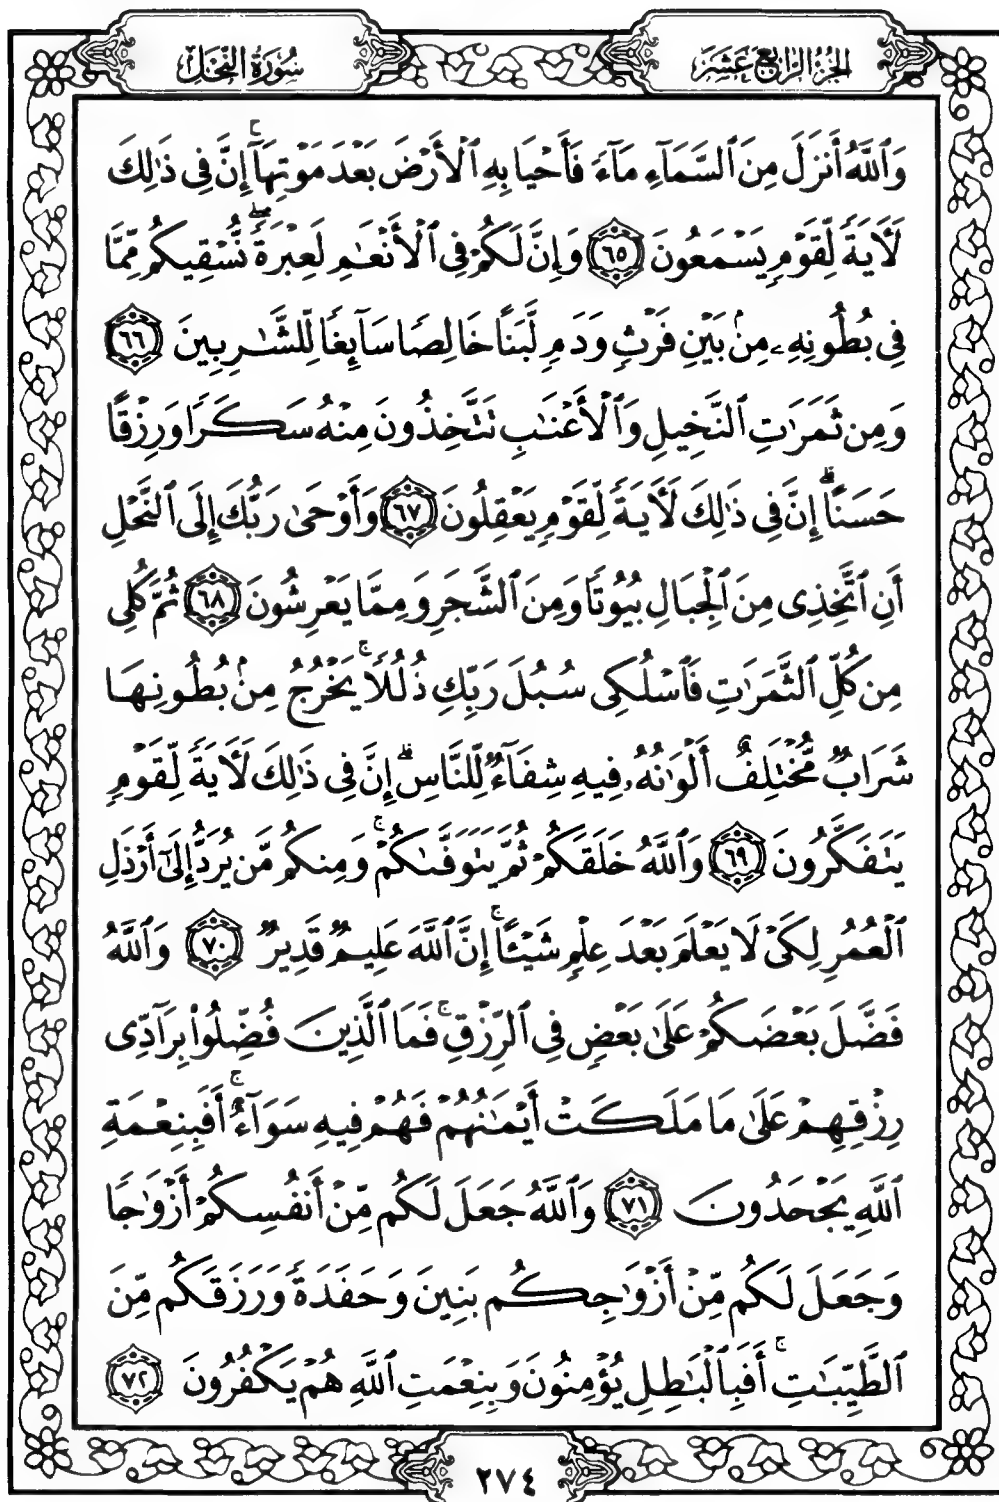 الجزء الرابع عشر
سورة النحل
وَٱللَّهُ أَنزَلَ مِنَ ٱلسَّمَآءِ مَآءً فَأَحْيَا بِهِ ٱلْأَرْضَ بَعْدَ مَوْتِهَآ ۚ إِنَّ فِى ذَٰلِكَ
لَءَايَةً لِّقَوْمٍ يَسْمَعُونَ ﴿٦٥﴾ وَإِنَّ لَكُمْ فِى ٱلْأَنْعَٰمِ لَعِبْرَةً ۖ نُّسْقِيكُم مِّمَّا
فِى بُطُونِهِۦ مِنۢ بَيْنِ فَرْثٍ وَدَمٍ لَّبَنًا خَالِصًا سَآئِغًا لِّلشَّٰرِبِينَ ﴿٦٦﴾
وَمِن ثَمَرَٰتِ ٱلنَّخِيلِ وَٱلْأَعْنَٰبِ تَتَّخِذُونَ مِنْهُ سَكَرًا وَرِزْقًا
حَسَنًا ۗ إِنَّ فِى ذَٰلِكَ لَءَايَةً لِّقَوْمٍ يَعْقِلُونَ ﴿٦٧﴾ وَأَوْحَىٰ رَبُّكَ إِلَى ٱلنَّحْلِ
أَنِ ٱتَّخِذِى مِنَ ٱلْجِبَالِ بُيُوتًا وَمِنَ ٱلشَّجَرِ وَمِمَّا يَعْرِشُونَ ﴿٦٨﴾ ثُمَّ كُلِى
مِن كُلِّ ٱلثَّمَرَٰتِ فَٱسْلُكِى سُبُلَ رَبِّكِ ذُلُلًا ۚ يَخْرُجُ مِنۢ بُطُونِهَا
شَرَابٌ مُّخْتَلِفٌ أَلْوَٰنُهُۥ فِيهِ شِفَآءٌ لِّلنَّاسِ ۗ إِنَّ فِى ذَٰلِكَ لَءَايَةً لِّقَوْمٍ
يَتَفَكَّرُونَ ﴿٦٩﴾ وَٱللَّهُ خَلَقَكُمْ ثُمَّ يَتَوَفَّىٰكُمْ ۚ وَمِنكُم مَّن يُرَدُّ إِلَىٰٓ أَرْذَلِ
ٱلْعُمُرِ لِكَىْ لَا يَعْلَمَ بَعْدَ عِلْمٍ شَيْـًٔا ۚ إِنَّ ٱللَّهَ عَلِيمٌ قَدِيرٌ ﴿٧٠﴾ وَٱللَّهُ
فَضَّلَ بَعْضَكُمْ عَلَىٰ بَعْضٍ فِى ٱلرِّزْقِ ۚ فَمَا ٱلَّذِينَ فُضِّلُوا۟ بِرَآدِّى
رِزْقِهِمْ عَلَىٰ مَا مَلَكَتْ أَيْمَٰنُهُمْ فَهُمْ فِيهِ سَوَآءٌ ۚ أَفَبِنِعْمَةِ
ٱللَّهِ يَجْحَدُونَ ﴿٧١﴾ وَٱللَّهُ جَعَلَ لَكُم مِّنْ أَنفُسِكُمْ أَزْوَٰجًا
وَجَعَلَ لَكُم مِّنْ أَزْوَٰجِكُم بَنِينَ وَحَفَدَةً وَرَزَقَكُم مِّنَ
ٱلطَّيِّبَٰتِ ۚ أَفَبِٱلْبَٰطِلِ يُؤْمِنُونَ وَبِنِعْمَتِ ٱللَّهِ هُمْ يَكْفُرُونَ ﴿٧٢﴾
٢٧٤